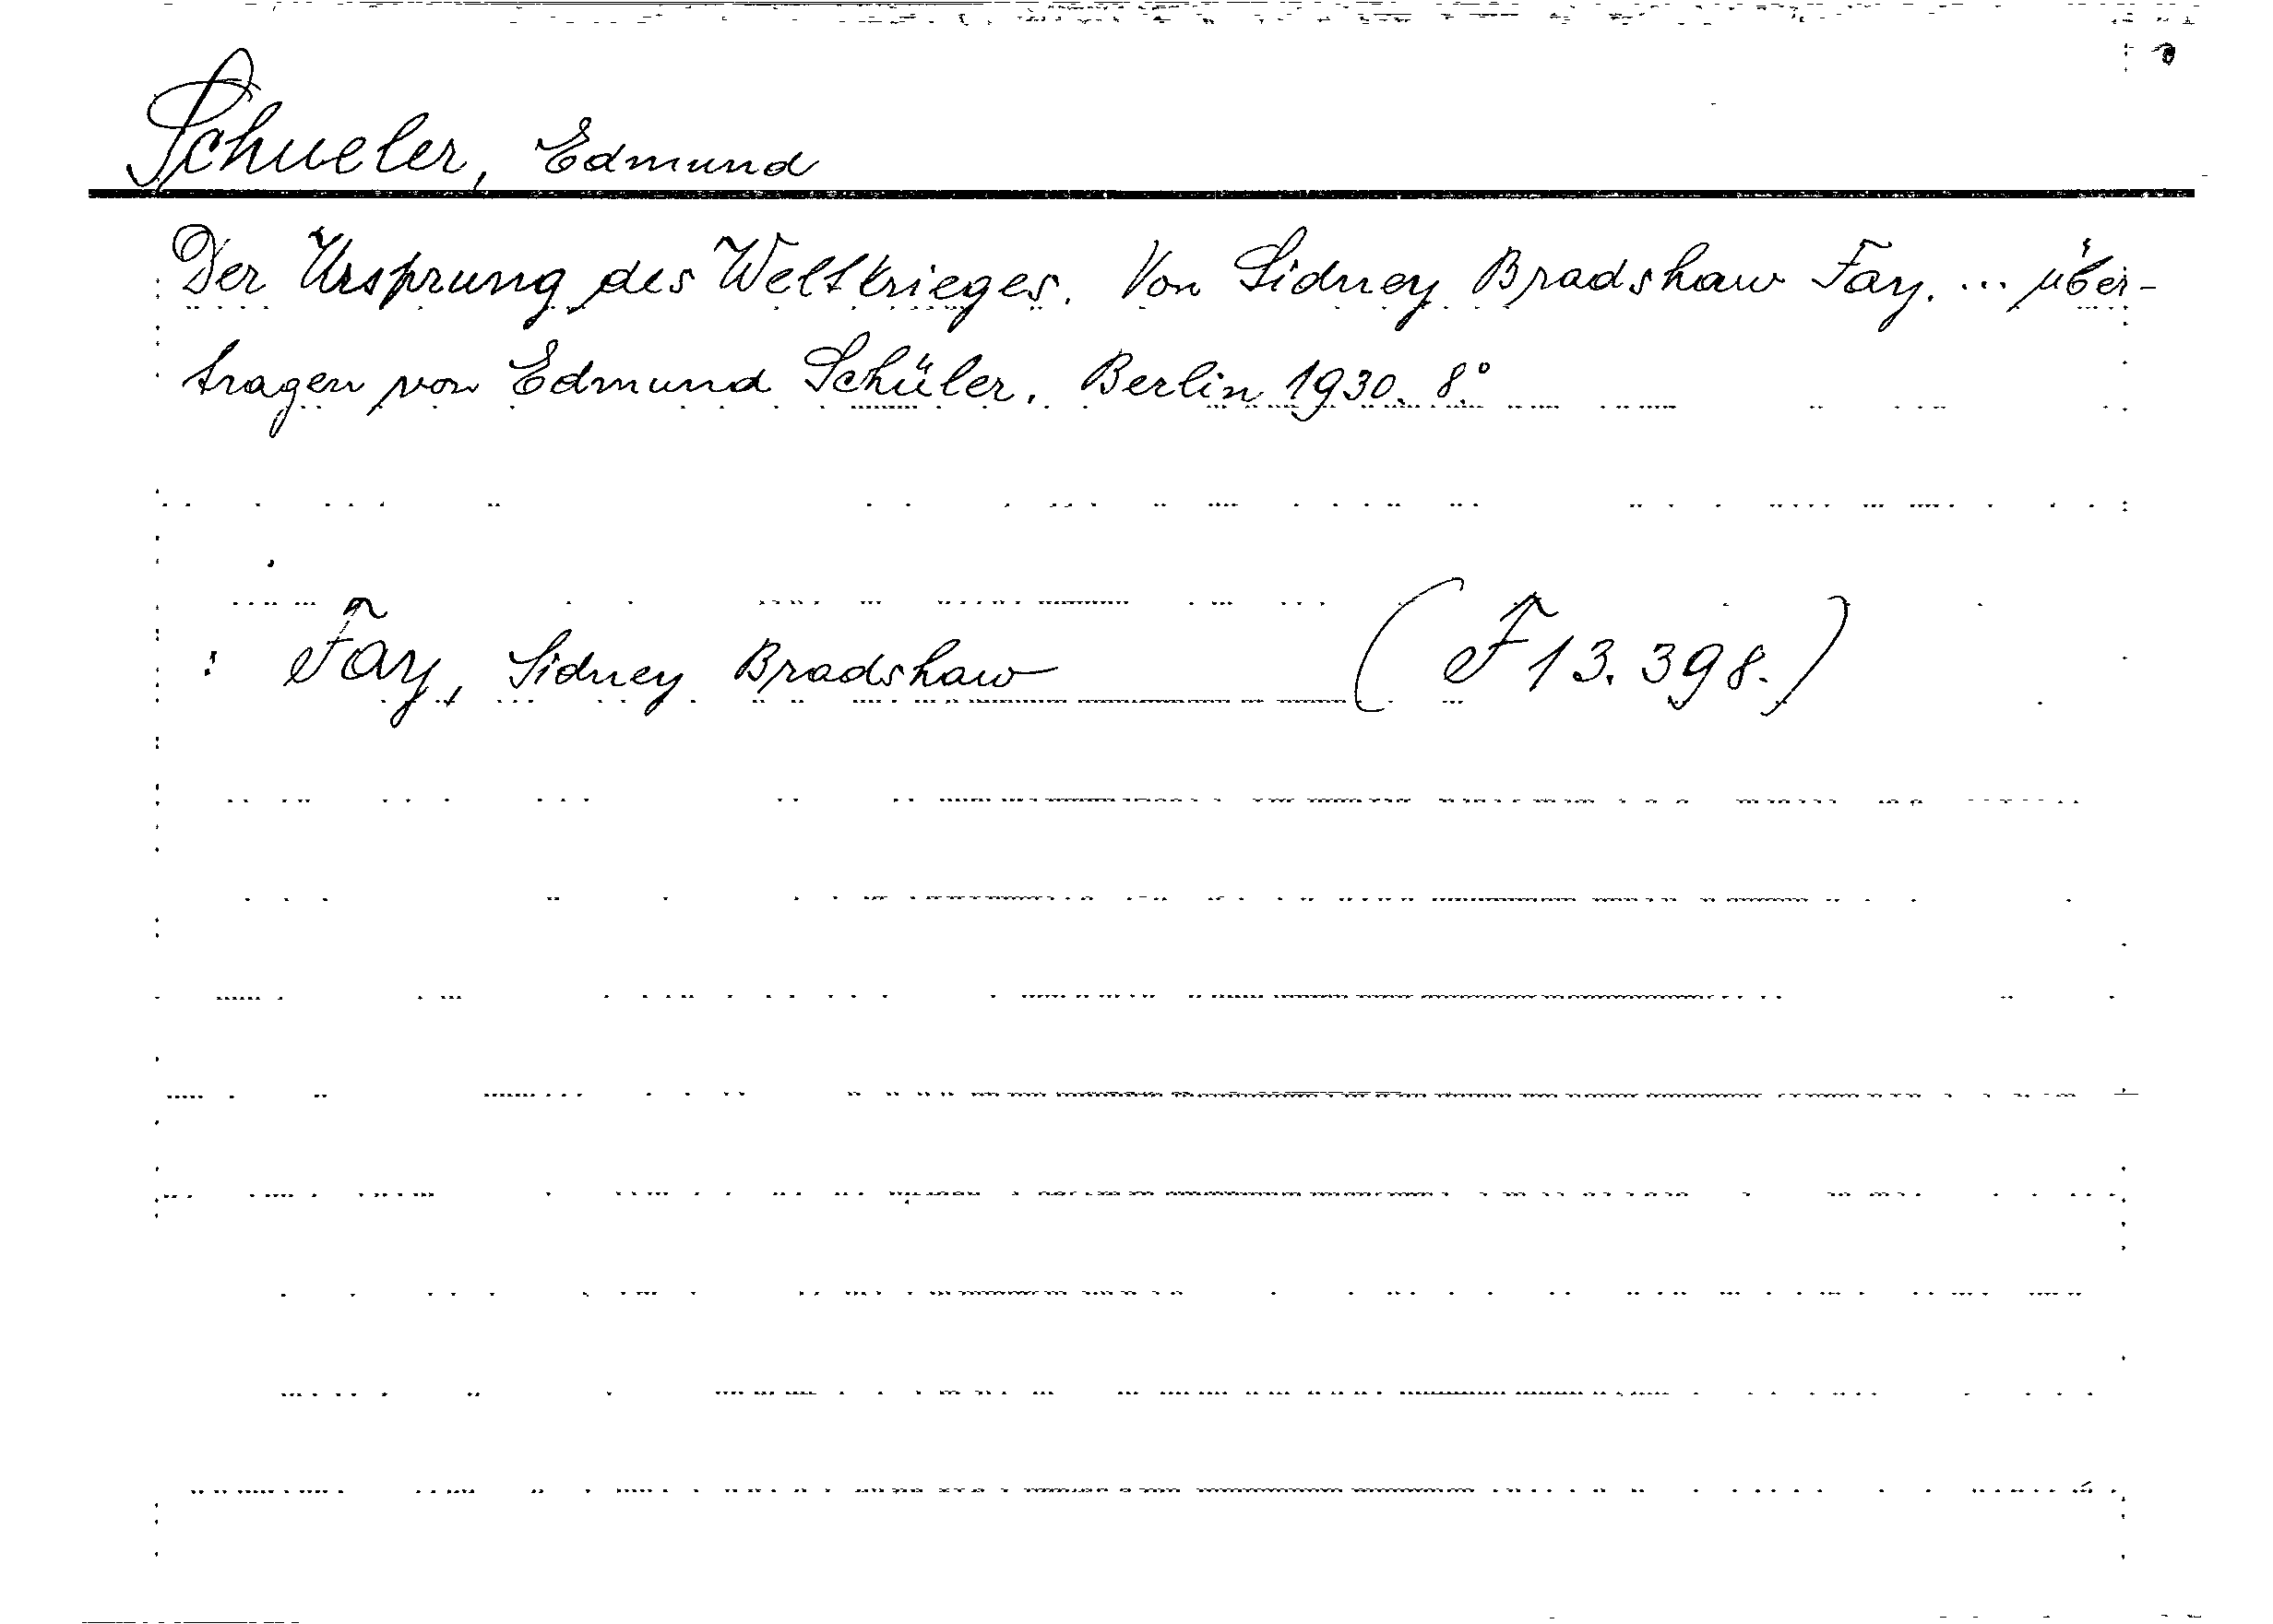 Schueler, Edmund
Der Ursprung des Weltkrieges. Von Sidney Bradshaw Fay. ... über-
tragen von Edmund Schüler. Berlin 1930. 8°.
: Fay, Sidney Bradshaw (F 13.398.)